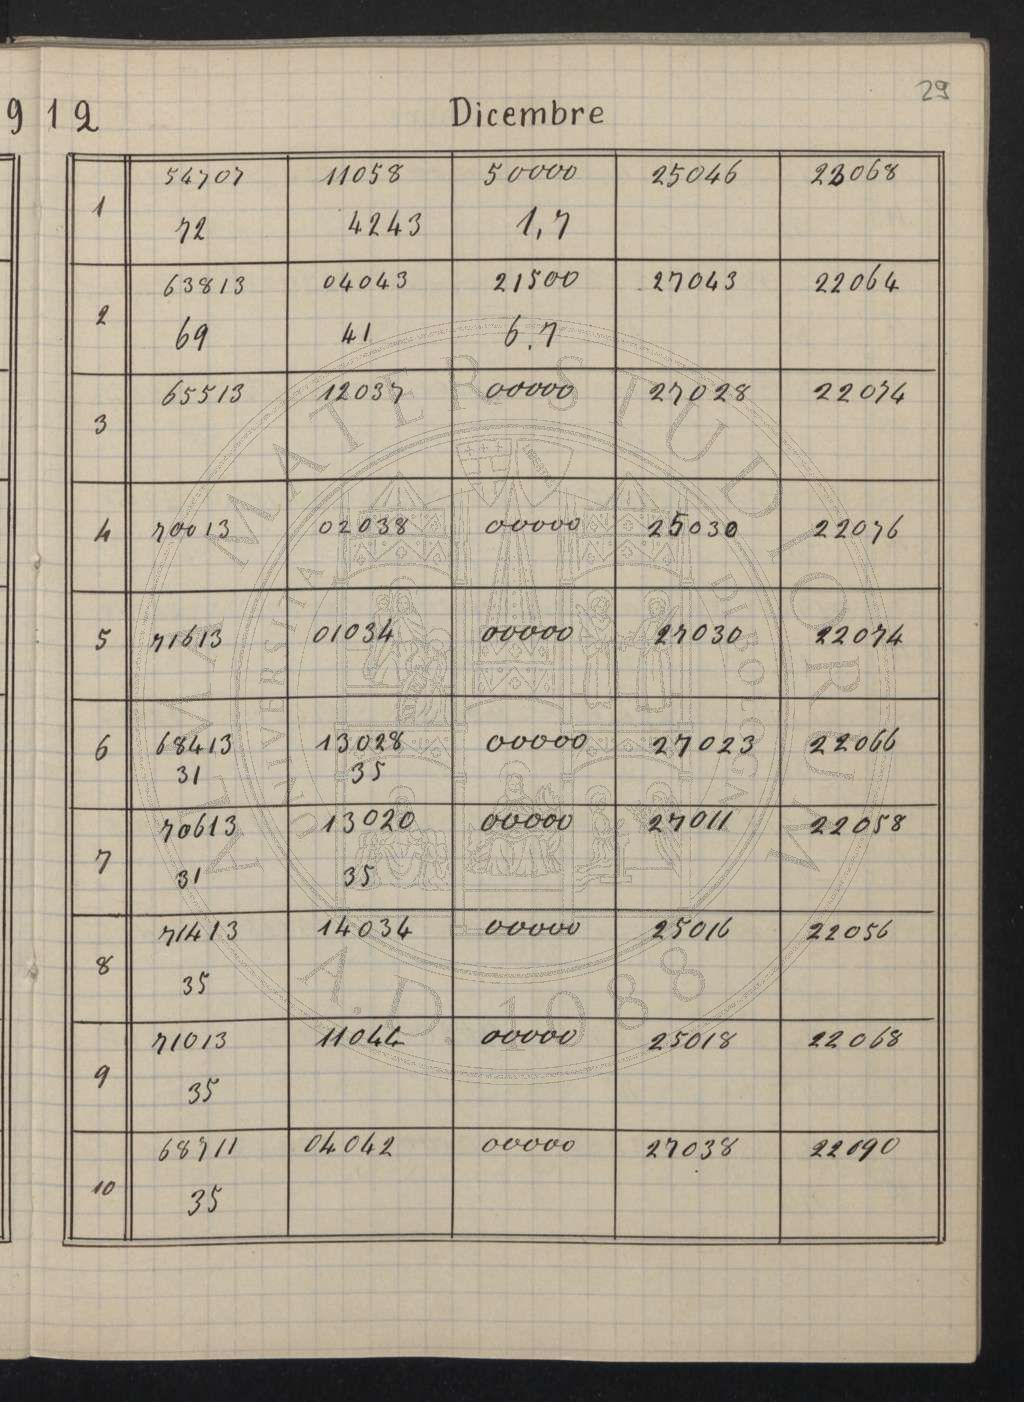 29
912 Dicembre
1 54707 11058 50000 25046 23068
72 4243 1,7
2 63813 04043 21500 27043 22064
69 41 6.7
3 65513 12037 00000 27028 22074
4 70013 02038 00000 25030 22076
5 71613 01034 00000 27030 22074
6 68413 13028 00000 27023 22066
31 35
7 70613 13020 00000 27011 22058
31 35
8 71413 14034 00000 25016 22056
35
9 71013 11044 00000 25018 22068
35
10 68711 04042 00000 27038 22090
35
ALMA MATER STUDIORUM
UNIVERSITÀ DI BOLOGNA
A.D. 1088